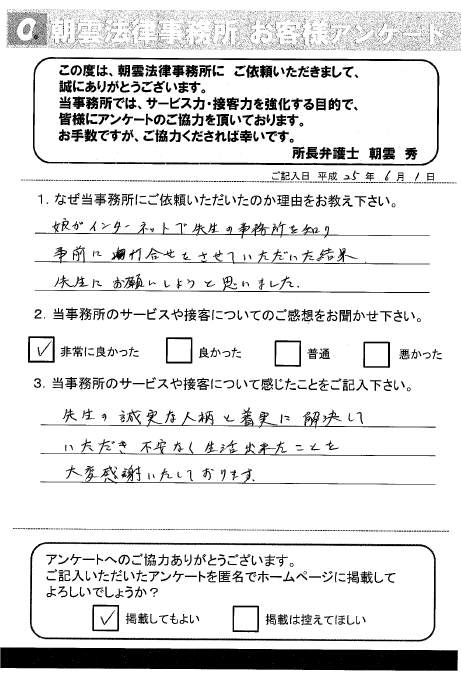 Q. 朝雲法律事務所 お客様アンケート
この度は、朝雲法律事務所に ご依頼いただきまして、
誠にありがとうございます。
当事務所では、サービス力・接客力を強化する目的で、
皆様にアンケートのご協力を頂いております。
お手数ですが、ご協力くだされば幸いです。
所長弁護士 朝雲 秀
ご記入日 平成 25 年 6 月 1 日
1. なぜ当事務所にご依頼いただいたのか理由をお教え下さい。
娘がインターネットで先生の事務所を知り
事前に 打合せをさせていただいた結果
先生にお願いしようと思いました.
2. 当事務所のサービスや接客についてのご感想をお聞かせ下さい。
✓ 非常に良かった 良かった 普通 悪かった
3. 当事務所のサービスや接客について感じたことをご記入下さい。
先生の誠実な人柄と着実に解決して
いただき 不安なく生活出来たことを
大変感謝いたしております.
アンケートへのご協力ありがとうございます。
ご記入いただいたアンケートを匿名でホームページに掲載して
よろしいでしょうか?
✓ 掲載してもよい 掲載は控えてほしい